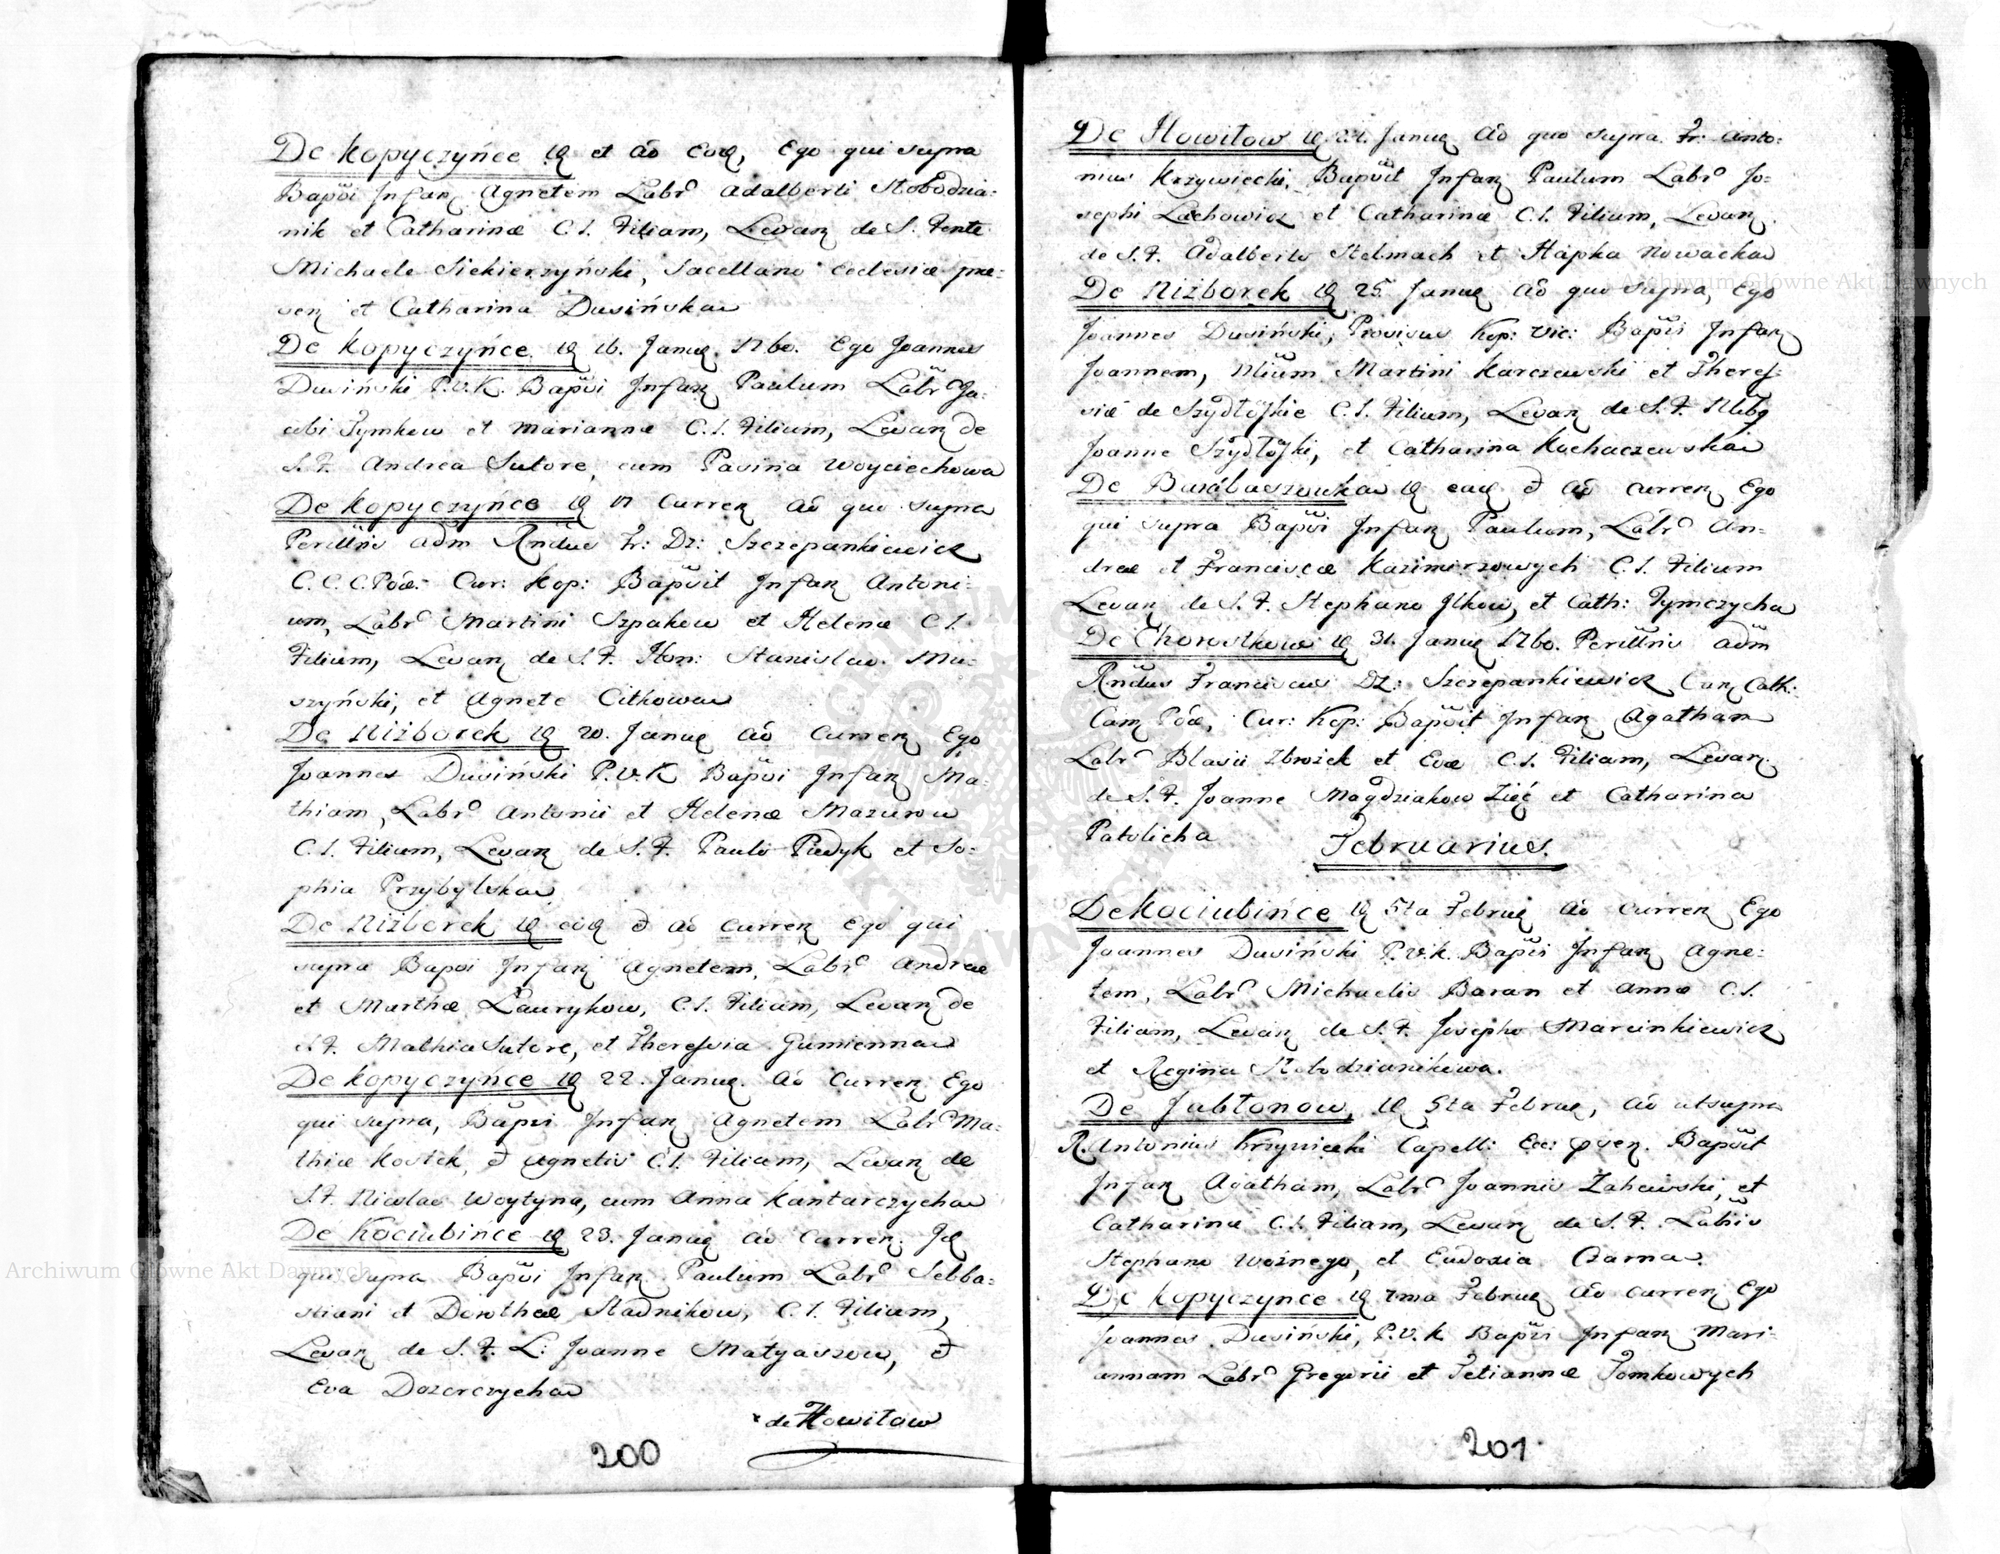 De Kopyczyńce et Ao Eod, Ego qui supra
Bapti Infan Agnetem Labr Adalberti Słobodzia:
nik et Catharinæ C.L. Filiam, Levan de S. Fonte
Michaele Siekierzyński, Sacellano Ecclesiæ præ:
sen et Catharina Dusińska
De Kopyczyńce 16. Janu 1760. Ego Joannes
Dusiński P.V.K. Bapti Infan Paulum Labr Ja:
cobi Tymkow et Mariannæ C.L. Filium, Levan de
S.F. Andrea Sutore, cum Pasina Woyciechowa
De Kopyczyńce 17 Curren Ao quo supra
Perillris adm Rndus Fr: Dz: Szczepankiewicz
C.C.C.Poæ: Cur: Kop: Bapvit Infan Antoni:
um, Labr Martini Szpakow et Helenæ C L.
Filium, Levan de S.F. Hon: Stanislao Mu:
szyński, et Agnete Citkowa
De Niżborek 20. Janu Ao Curren Ego
Joannes Dusiński P.V.K Bapvi Infan Ma:
thiam, Labr Antonii et Helenæ Mazurow
C.L. Filium, Levan de S.F. Paulo Pudyk et So:
phia Przybylska
De Niżborek Ao Curren Ego qui
supra Bapvi Infan Agnetem, Labr Andreæ
et Marthæ Laurykow, C.L. Filiam, Levan de
S.F. Mathia Sutore, et Theressia Gumienna
De Kopyczyńce 22. Janu. Ao Curren Ego
qui supra, Bapvi Infan Agnetem Labr Ma:
thiæ Kostek, Agnetis C.L. Filiam, Levan de
S.F. Nicolao Woytyna, cum Anna Kantarczycha
De Kociubince 23. Janu Ao Curren. Id
qui supra Bapvi Infan Paulum Labr Sebba:
stiani et Dorotheæ Stadnikow, C.L. Filium,
Levan de S.F. L: Joanne Matyaszow,
Eva Dozorczycha
de Howiłow
200
De Howiłow 24. Janu Ao quo supra Fr: Anto:
nius Krzywiecki, Bapvit Infan Paulum Labr Jo:
sephi Lachowicz et Catharinæ C.L. Filium, Levan
de S.F. Adalberto Stelmach et Hapka Nowacka
De Niżborek 25. Janu Ao quo supra, Ego
Joannes Dusiński, Provisus Kop: Vic: Bapvi Infan
Joannem, Martini Karczewski et Theres:
siæ de Szydłoskie C.L. Filium, Levan de S.F.
Joanne Szydłoski, et Catharina Kuchaczewska
De Barabaszowka Ao Curren Ego
qui supra Bapvi Infan Paulum, Labr An:
dreæ et Franciscæ Kazimirzowych C.L. Filium
Levan de S.F. Stephano Ilkow, et Cath: Tymczycha
De Chorostkow 31. Janu 1760. Perillris adm
Rndus Franciscus Dz: Szczepankiewicz Can Cath:
Cam Poæ, Cur: Kop: Bapvit Infan Agatham
Labr Blasii Zbrożek et Evæ C.L. Filiam, Levan
de S.F. Joanne Magdziakow Zięć et Catharina
Patolicha
Februarius.
De Kociubińce 5ta Febru Ao Curren Ego
Joannes Dusiński P.V.K. Bapvi Infan Agne:
tem, Labr Michaelis Baran et Annæ C.L.
Filiam, Levan de S.F. Josepho Marcinkiewicz
et Regina Słobodzianikowa.
De Jabłonow, 5ta Febru, Ao ut supra
R. Antonius Krzywiecki Capell: Ecc: Bapvit
Infan Agatham, Labr Joannis Zahewski, et
Catharinæ C.L. Filiam, Levan de S.F. Labris
Stephano Woźnego, et Eudoxia Czarna.
De Kopyczynce 7ma Febru Ao Curren Ego
Joannes Dusiński, P.V.K Bapvi Infan Mari:
annam Labr Gregorii et Tetiannæ Tomkowych
201
Archiwum Główne Akt Dawnych
Archiwum Główne Akt Dawnych